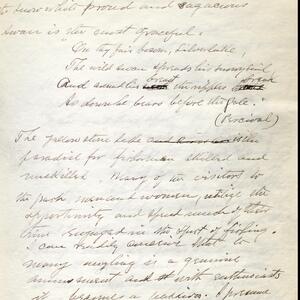 the snow white proud and sagacious
Swan is the most graceful.
"On thy fair bosom, silver lake,
The wild swan spreads his snowy sail
And round his breast the ripples break
As down he bears before the gale."
(Percival)
The Yellowstone Lake is the
paradise for fishermen skilled and
unskilled. Many of the visitors to
the park men and women, utilize the
opportunity and spend much of their
time engaged in the sport of fishing.
I can readily conceive that to
many angling is a genuine
amusement and with enthusiasts
it becomes a passion. I presume